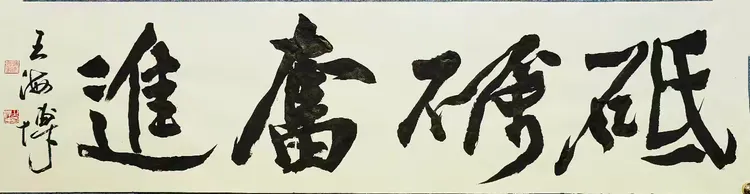 砥砺奮進
王海博